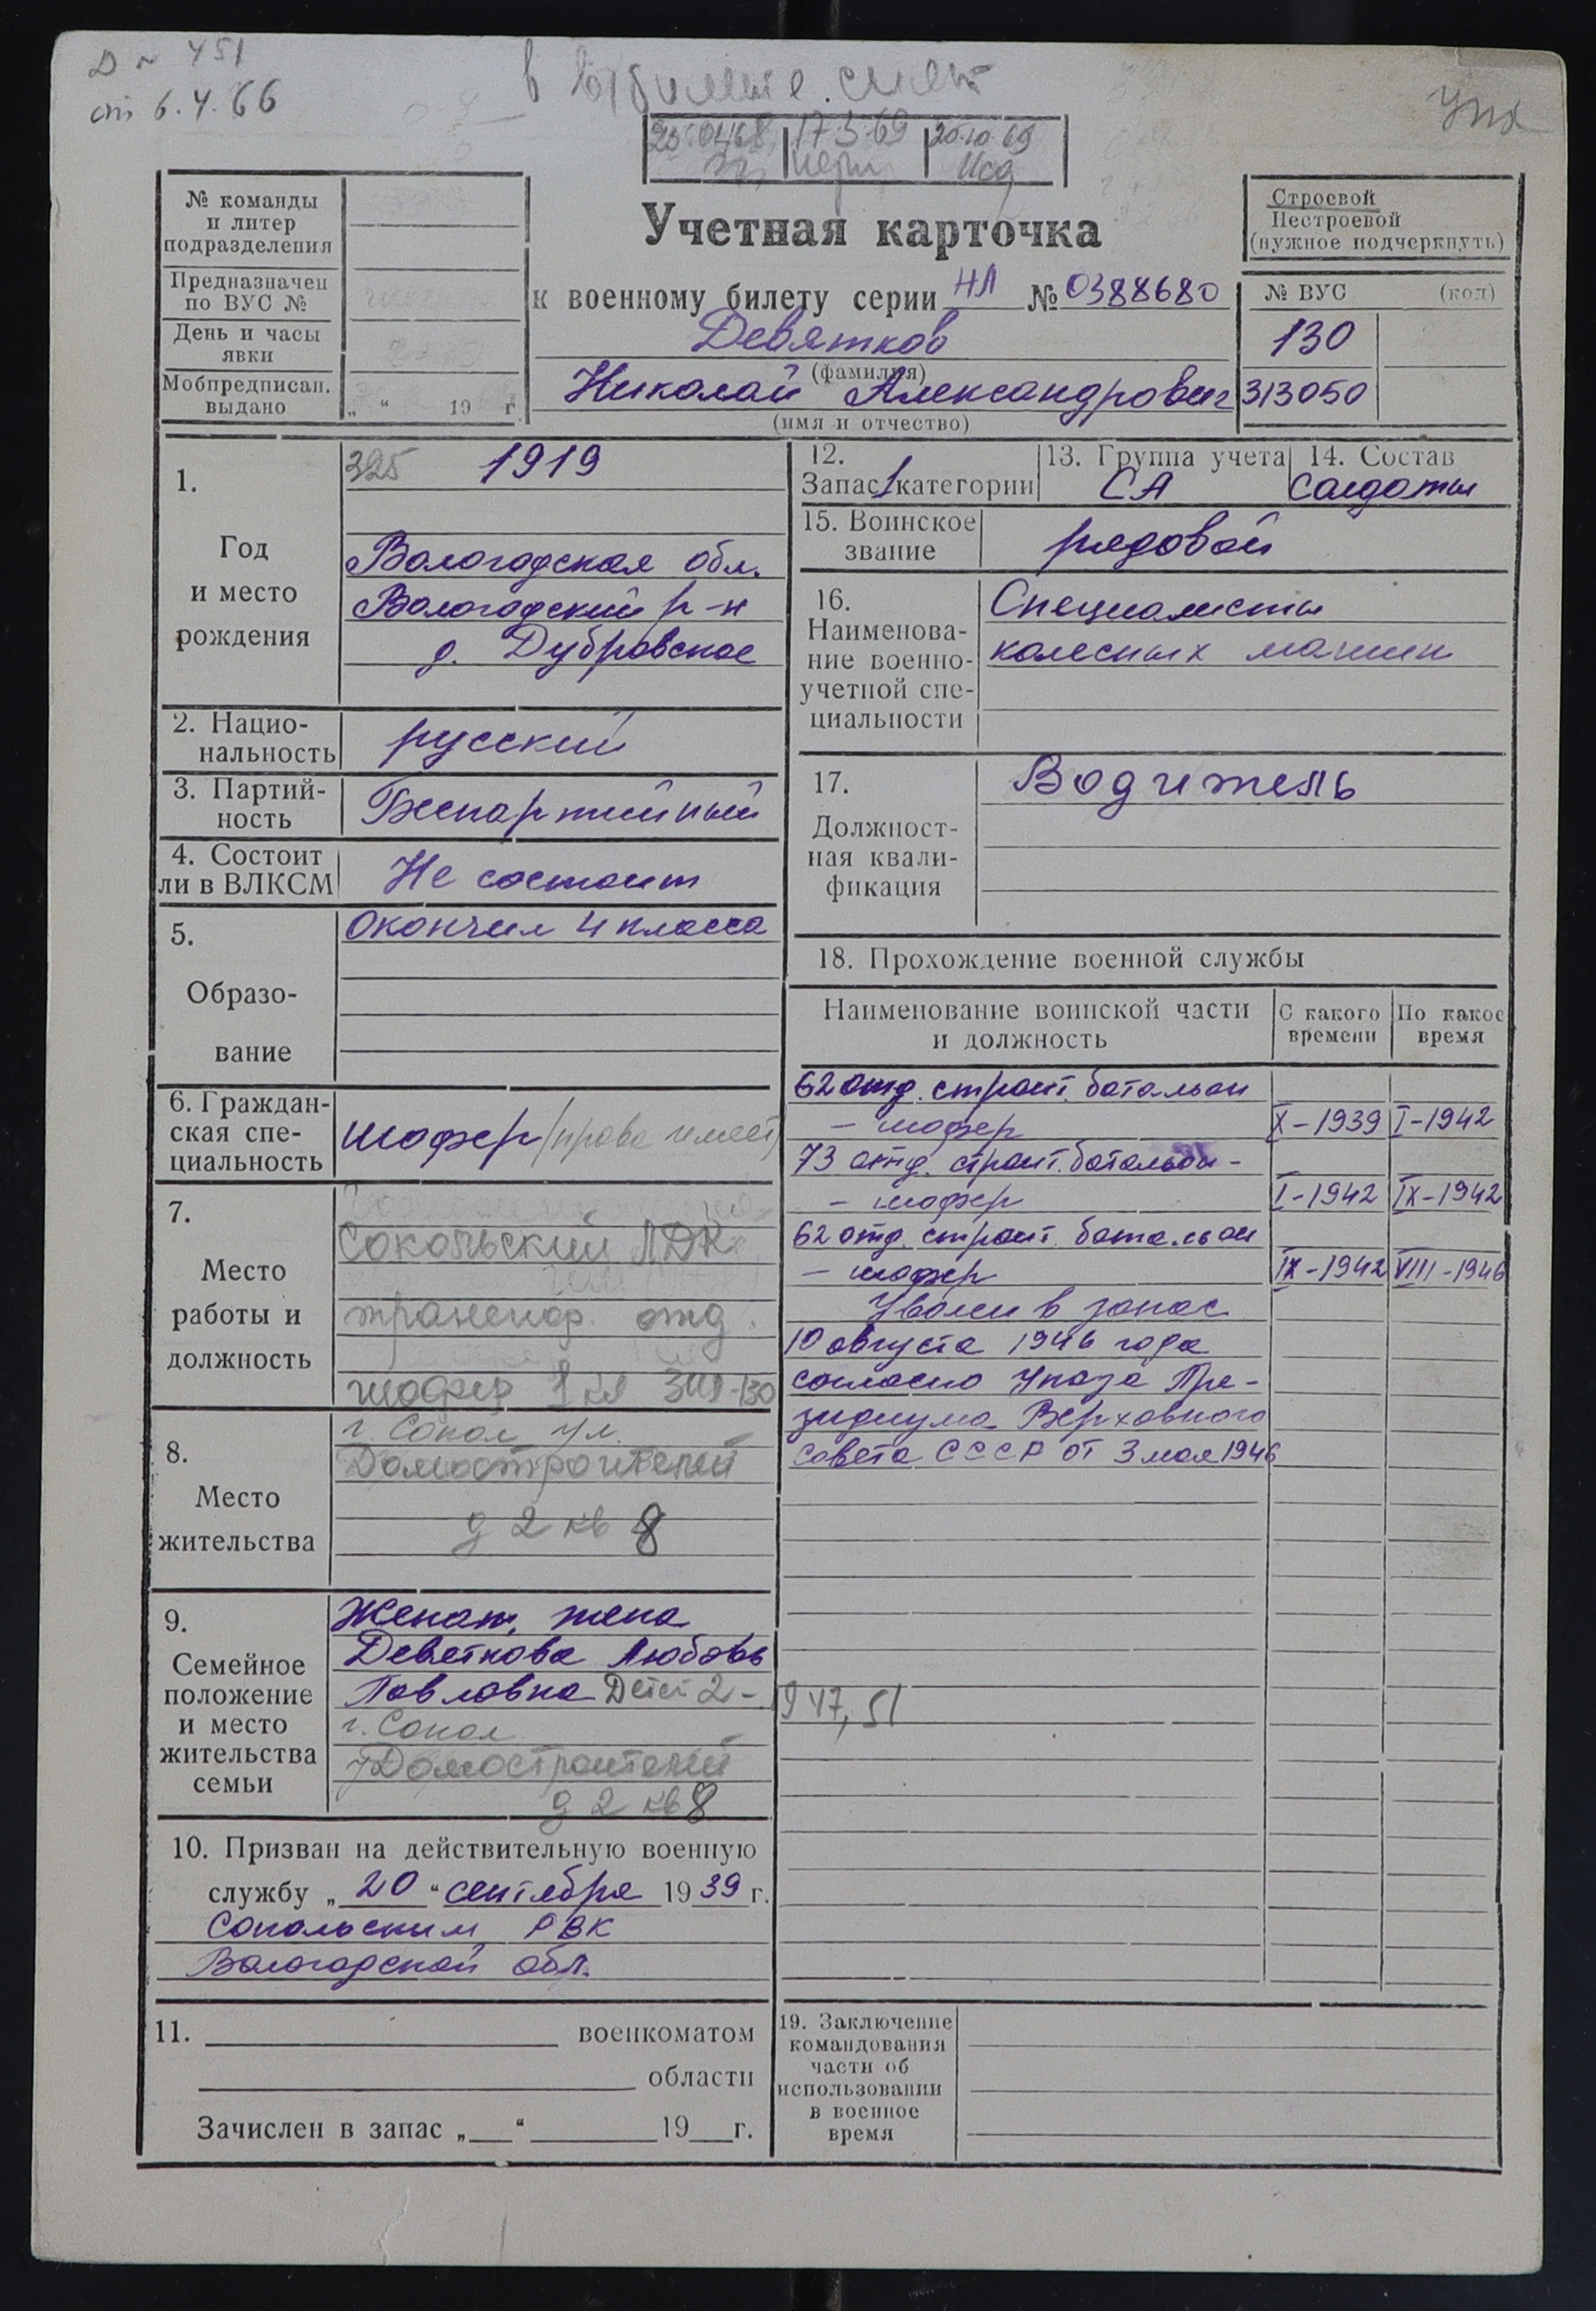 Д № 451
от 6.4.66
упк
25.04.68 17.3.69 20.10.69
№ команды
и литер
подразделения
Предназначен
по ВУС №
День и часы
явки
Мобпредписан.
выдано
„ “ 19 г.
Учетная карточка
к военному билету серии НЛ № 0388680
Девятков
(фамилия)
Николай Александрович
(имя и отчество)
Строевой
Нестроевой
(нужное подчеркнуть)
№ ВУС (код)
130
313050
1.
Год
и место
рождения
325 1919
Вологодская обл.
Вологодский р-н
д. Дубровское
2. Нацио-
нальность
русский
3. Партий-
ность
Беспартийный
4. Состоит
ли в ВЛКСМ
Не состоит
5.
Образо-
вание
Окончил 4 класса
6. Граждан-
ская спе-
циальность
шофер (права имеет)
7.
Место
работы и
должность
Сокольский ЛДК
транспор. отд.
шофер 1 кл
8.
Место
жительства
г. Сокол ул.
Домостроителей
д 2 кв 8
9.
Семейное
положение
и место
жительства
семьи
Женат, жена
Девяткова Любовь
Павловна Детей 2 - 947, 51
г. Сокол
Домостроителей
д 2 кв 8
10. Призван на действительную военную
службу „ 20 “ сентября 1939 г.
Сокольским РВК
Вологодской обл.
11. военкоматом
области
Зачислен в запас „ “ 19 г.
12.
Запас 1 категории
13. Группа учета
СА
14. Состав
солдаты
15. Воинское
звание
рядовой
16.
Наименова-
ние военно-
учетной спе-
циальности
Специалисты
колесных машин
17.
Должност-
ная квали-
фикация
Водитель
18. Прохождение военной службы
Наименование воинской части
и должность
С какого
времени
По какое
время
62 отд. строит. батальон
– шофер X-1939 I-1942
73 отд. строит. батальон -
– шофер I-1942 IX-1942
62 отд. строит. батальон
– шофер IX-1942 VIII-1946
Уволен в запас
10 августа 1946 года
согласно Указа Пре-
зидиума Верховного
Совета СССР от 3 мая 1946
19. Заключение
командования
части об
использовании
в военное
время